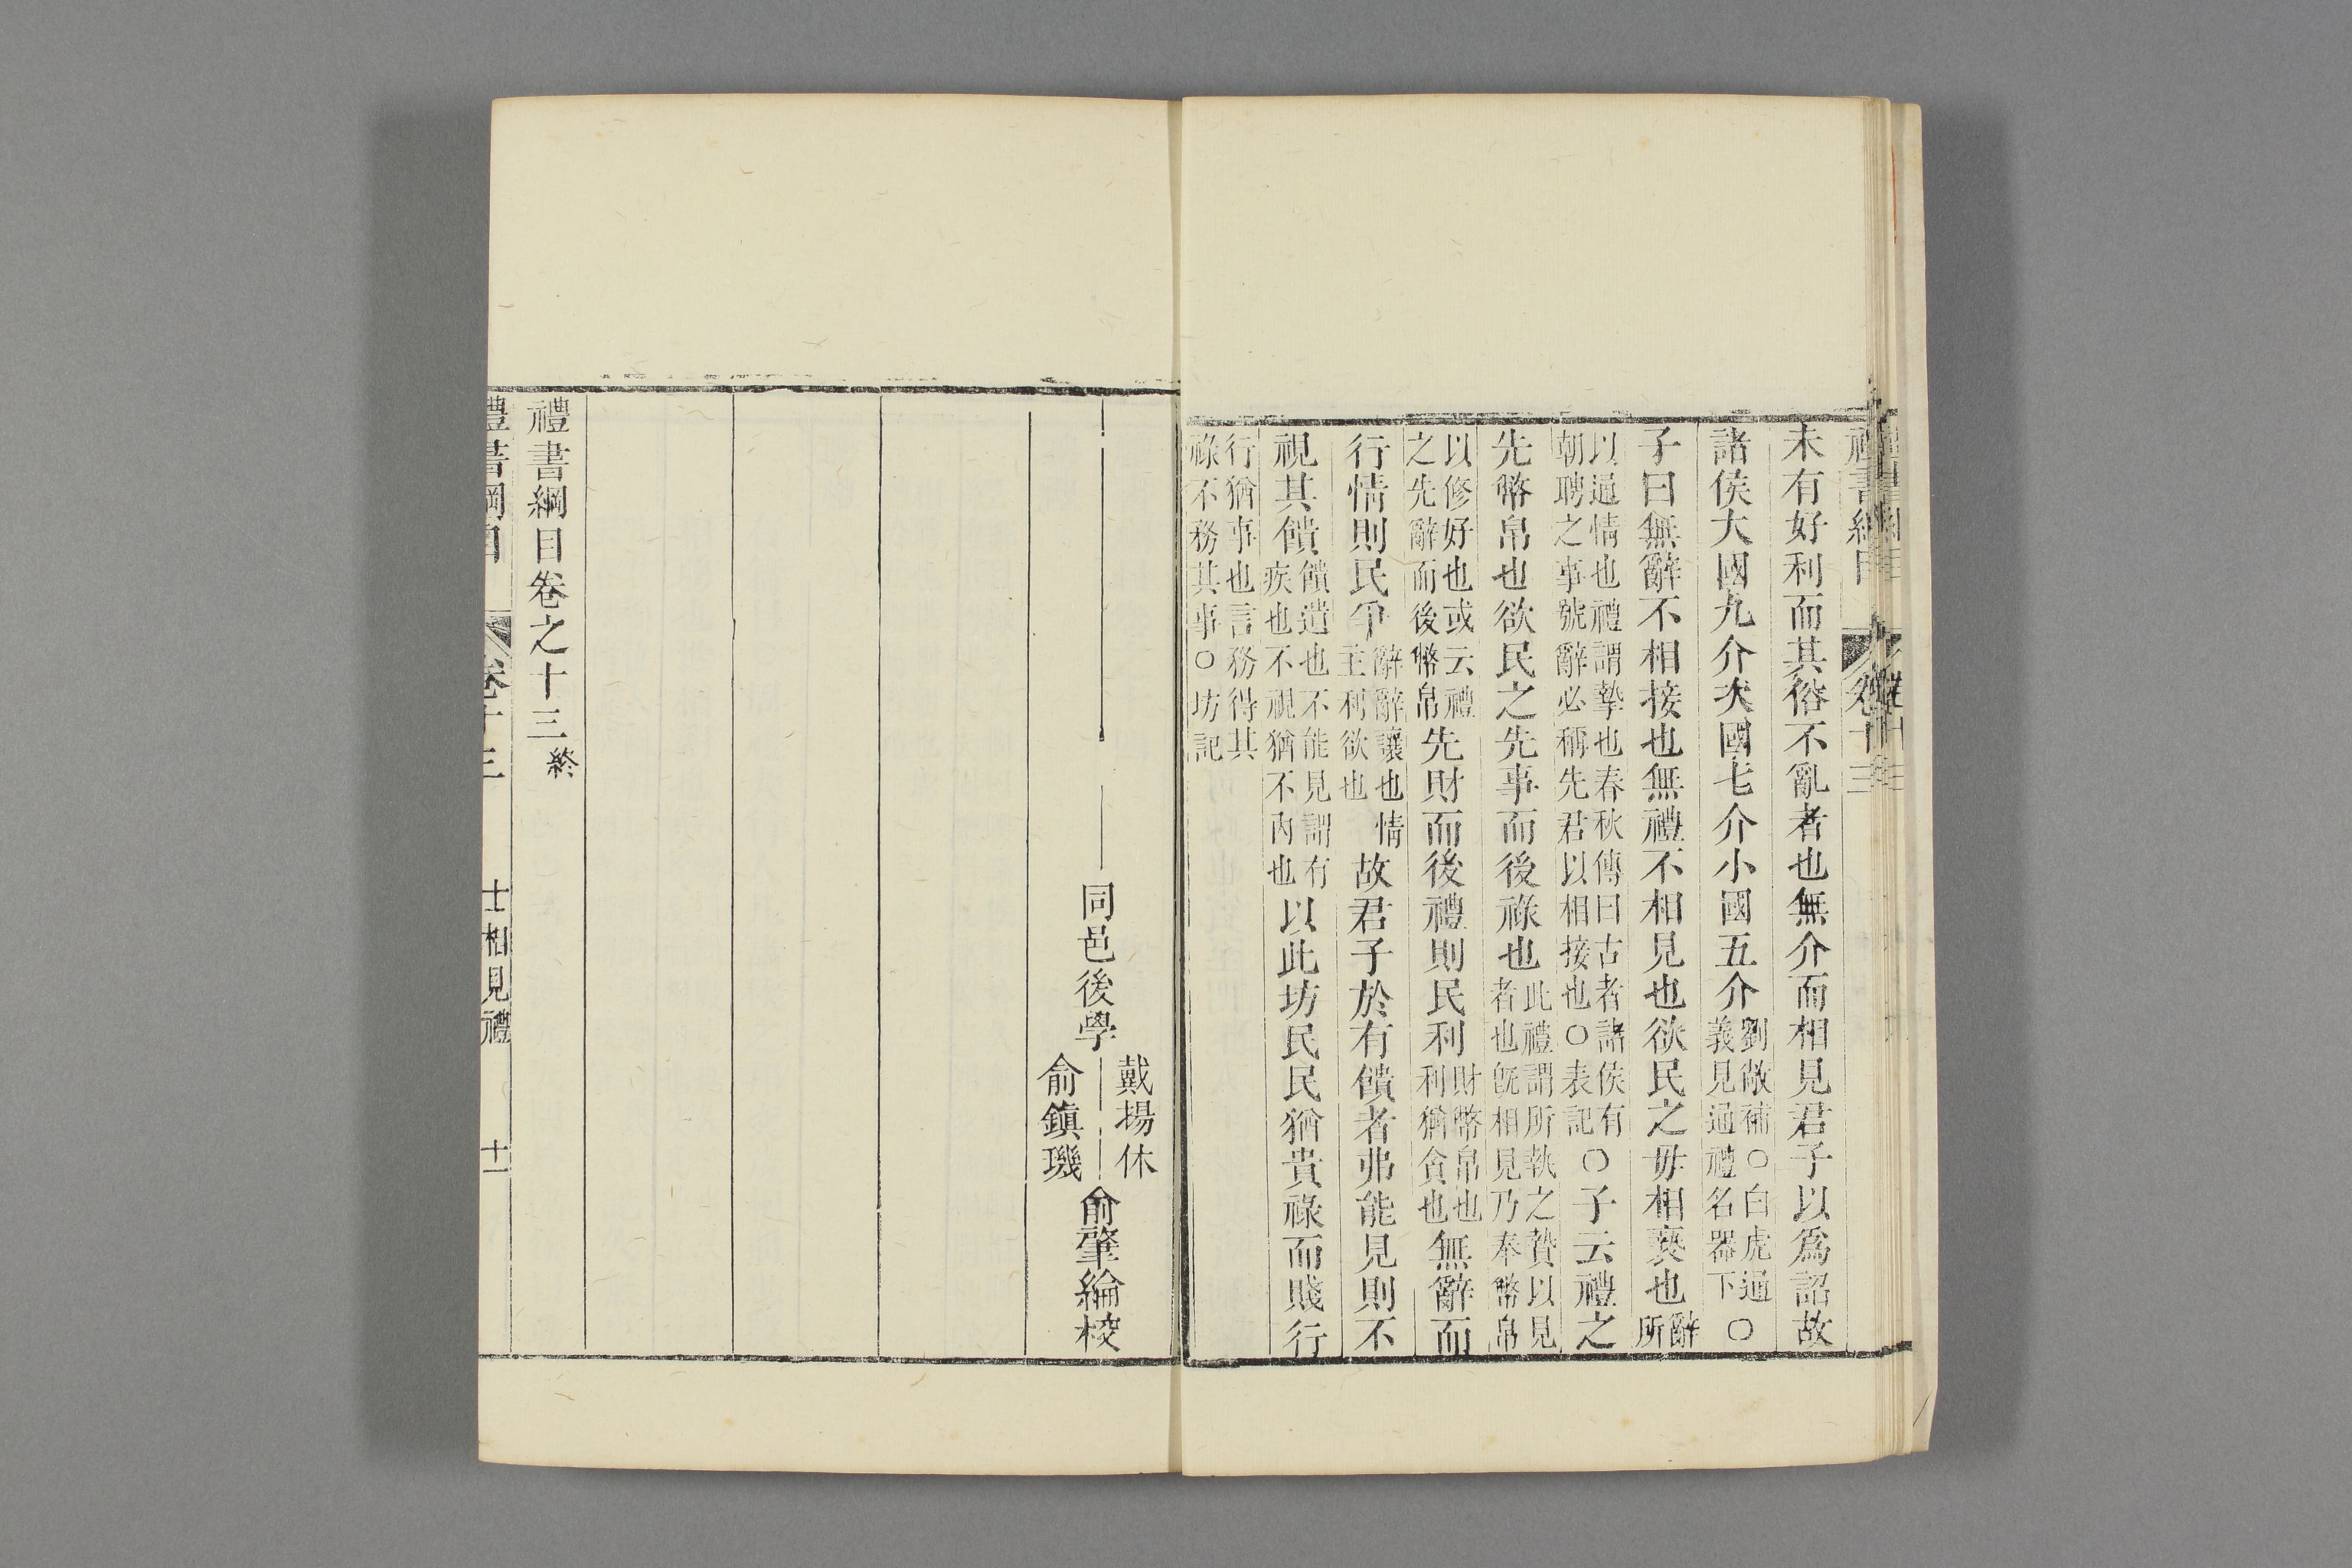 未有好利而其俗不亂者也無介而相見君子以爲諂故
諸侯大國九介次國七介小國五介劉敞補〇白虎通義見通禮名器下〇
子曰無辭不相接也無禮不相見也欲民之毋相褻也辭所
以通情也禮謂摯也春秋傳曰古者諸侯有朝聘之事號辭必稱先君以相接也〇表記〇子云禮之
先幣帛也欲民之先事而後祿也此禮謂所執之贄以見者也旣相見乃奉幣帛
以修好也或云禮之先辭而後幣帛先財而後禮則民利財幣帛也利猶貪也無辭而
行情則民爭辭辭讓也情主利欲也故君子於有饋者弗能見則不
視其饋饋遺也不能見謂有疾也不視猶不內也以此坊民民猶貴祿而賤行
行猶事也言務得其祿不務其事〇坊記
同邑後學戴揚休俞鎮璣俞肇綸校
禮書綱目卷之十三終
禮書綱目 卷十三 士相見禮 十一